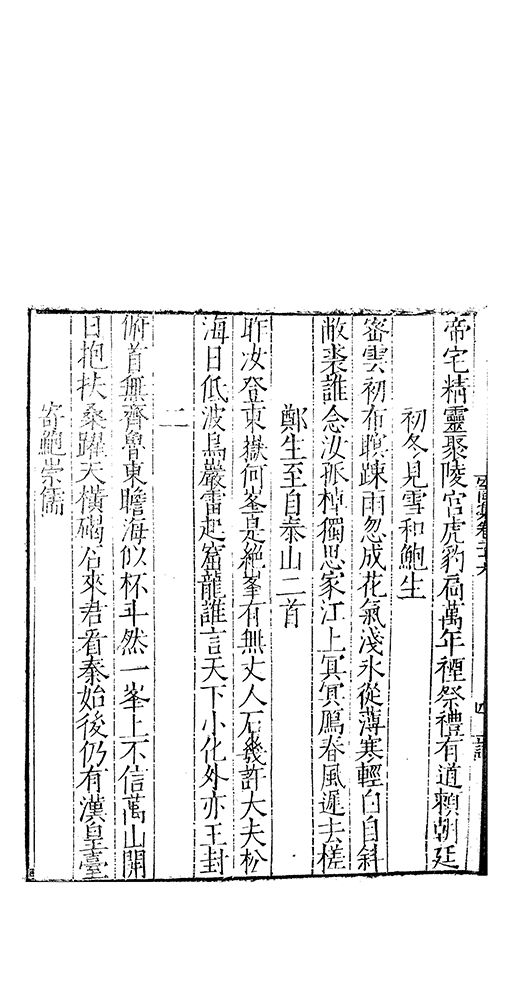 帝宅精靈聚陵宮虎豹扃萬年禋祭禮有道賴朝廷
初冬見雪和鮑生
密雲初布暝踈雨忽成花氣淺氷從薄寒輕白自斜
敝裘誰念汝孤棹獨思家江上冥冥鴈春風遲去槎
鄭生至自泰山二首
昨汝登東嶽何峯是絕峯有無丈人石幾許大夫松
海日低波鳥巖雷起窟龍誰言天下小化外亦王封
二
俯首無齊魯東瞻海似杯斗然一峯上不信萬山開
日抱扶桑躍天橫碣石來君看秦始後仍有漢皇臺
寄鮑崇儒